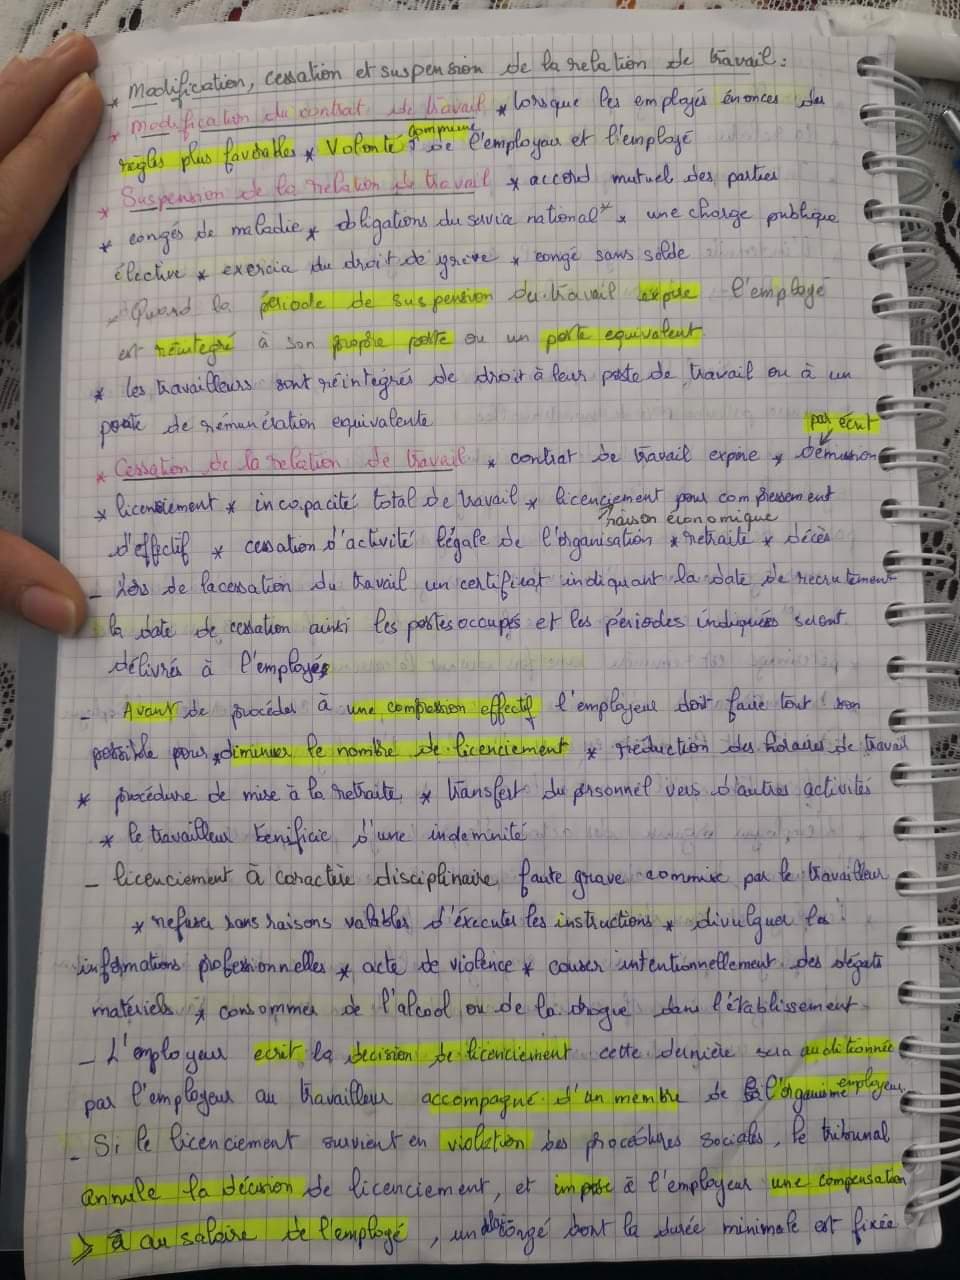 * Modification, cessation et suspension de la relation de travail :
* modification du contrat de travail * lorsque les employés énonces des
règles plus favorables * Volonté commune de l'employeur et l'employé
* Suspension de la relation de travail * accord mutuel des parties
* congés de maladie * obligations du service national * une charge publique
élective * exercice du droit de grève * congé sans solde
* Quand la période de suspension du travail expire l'employé
est réintegré à son propre poste ou un poste equivalent
* les travailleurs sont réintegrés de droit à leur poste de travail ou à un
poste de rémunération equivalente
par écrit
* Cessation de la relation de travail * contrat de travail expire * démission
* licenciement * incapacité total de travail * licenciement pour compressement
raison économique
d'effectif * cessation d'activité légale de l'organisation * retraite * décès
- lors de la cessation du travail un certificat indiquant la date de recrutement
la date de cessation ainsi les postes occupés et les périodes indiquées seront
délivrés à l'employé
- Avant de procéder à une compression effectif l'employeur doit faire tout son
possible pour diminuer le nombre de licenciement * réduction des horaires de travail
* procédure de mise à la retraite * transfert du personnel vers d'autres activités
* le travailleur benificie d'une indemnité
- licenciement à caractère disciplinaire faute grave commise par le travailleur
* refuser sans raisons valables d'éxecuter les instructions * divulguer les
informations professionnelles * acte de violence * causer intentionnellement des dégats
matériels * consommer de l'alcool ou de la drogue dans l'établissement
- L'employeur ecrit la décision de licenciement cette dernière sera auditionnée
par l'employeur au travailleur accompagné d'un membre de l'organisme employeur
- Si le licenciement survient en violation des procédures sociales, le tribunal
annule la décision de licenciement, et impose à l'employeur une compensation
au salaire de l'employé, un congé dont la durée minimale est fixée